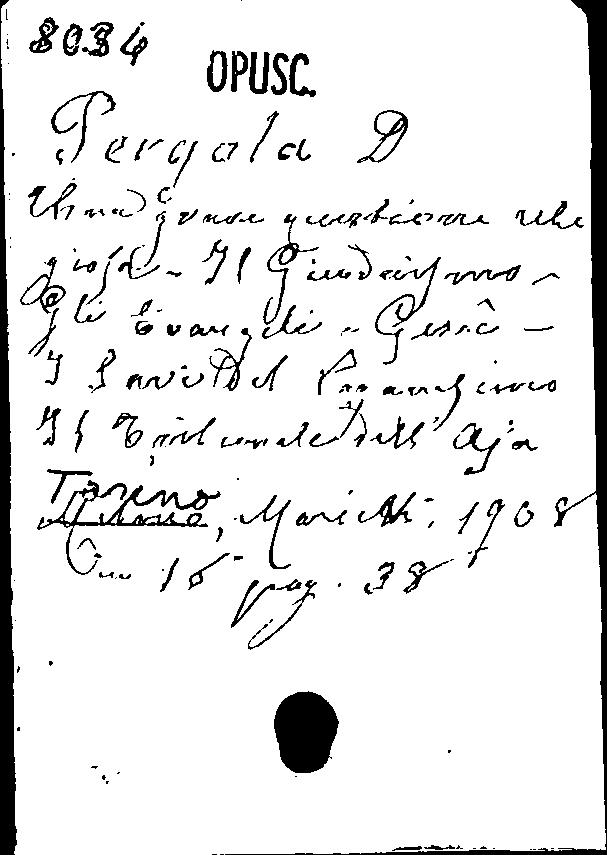 8034
OPUSC.
Pergola D
Una grave questione reli
giosa - Il Giudaismo -
Gli Evangeli - Gesù -
I Savi Del
Il Tribunale dell' Aja
Torino
Milano, Marietti, 1908
In 16° pag. 38